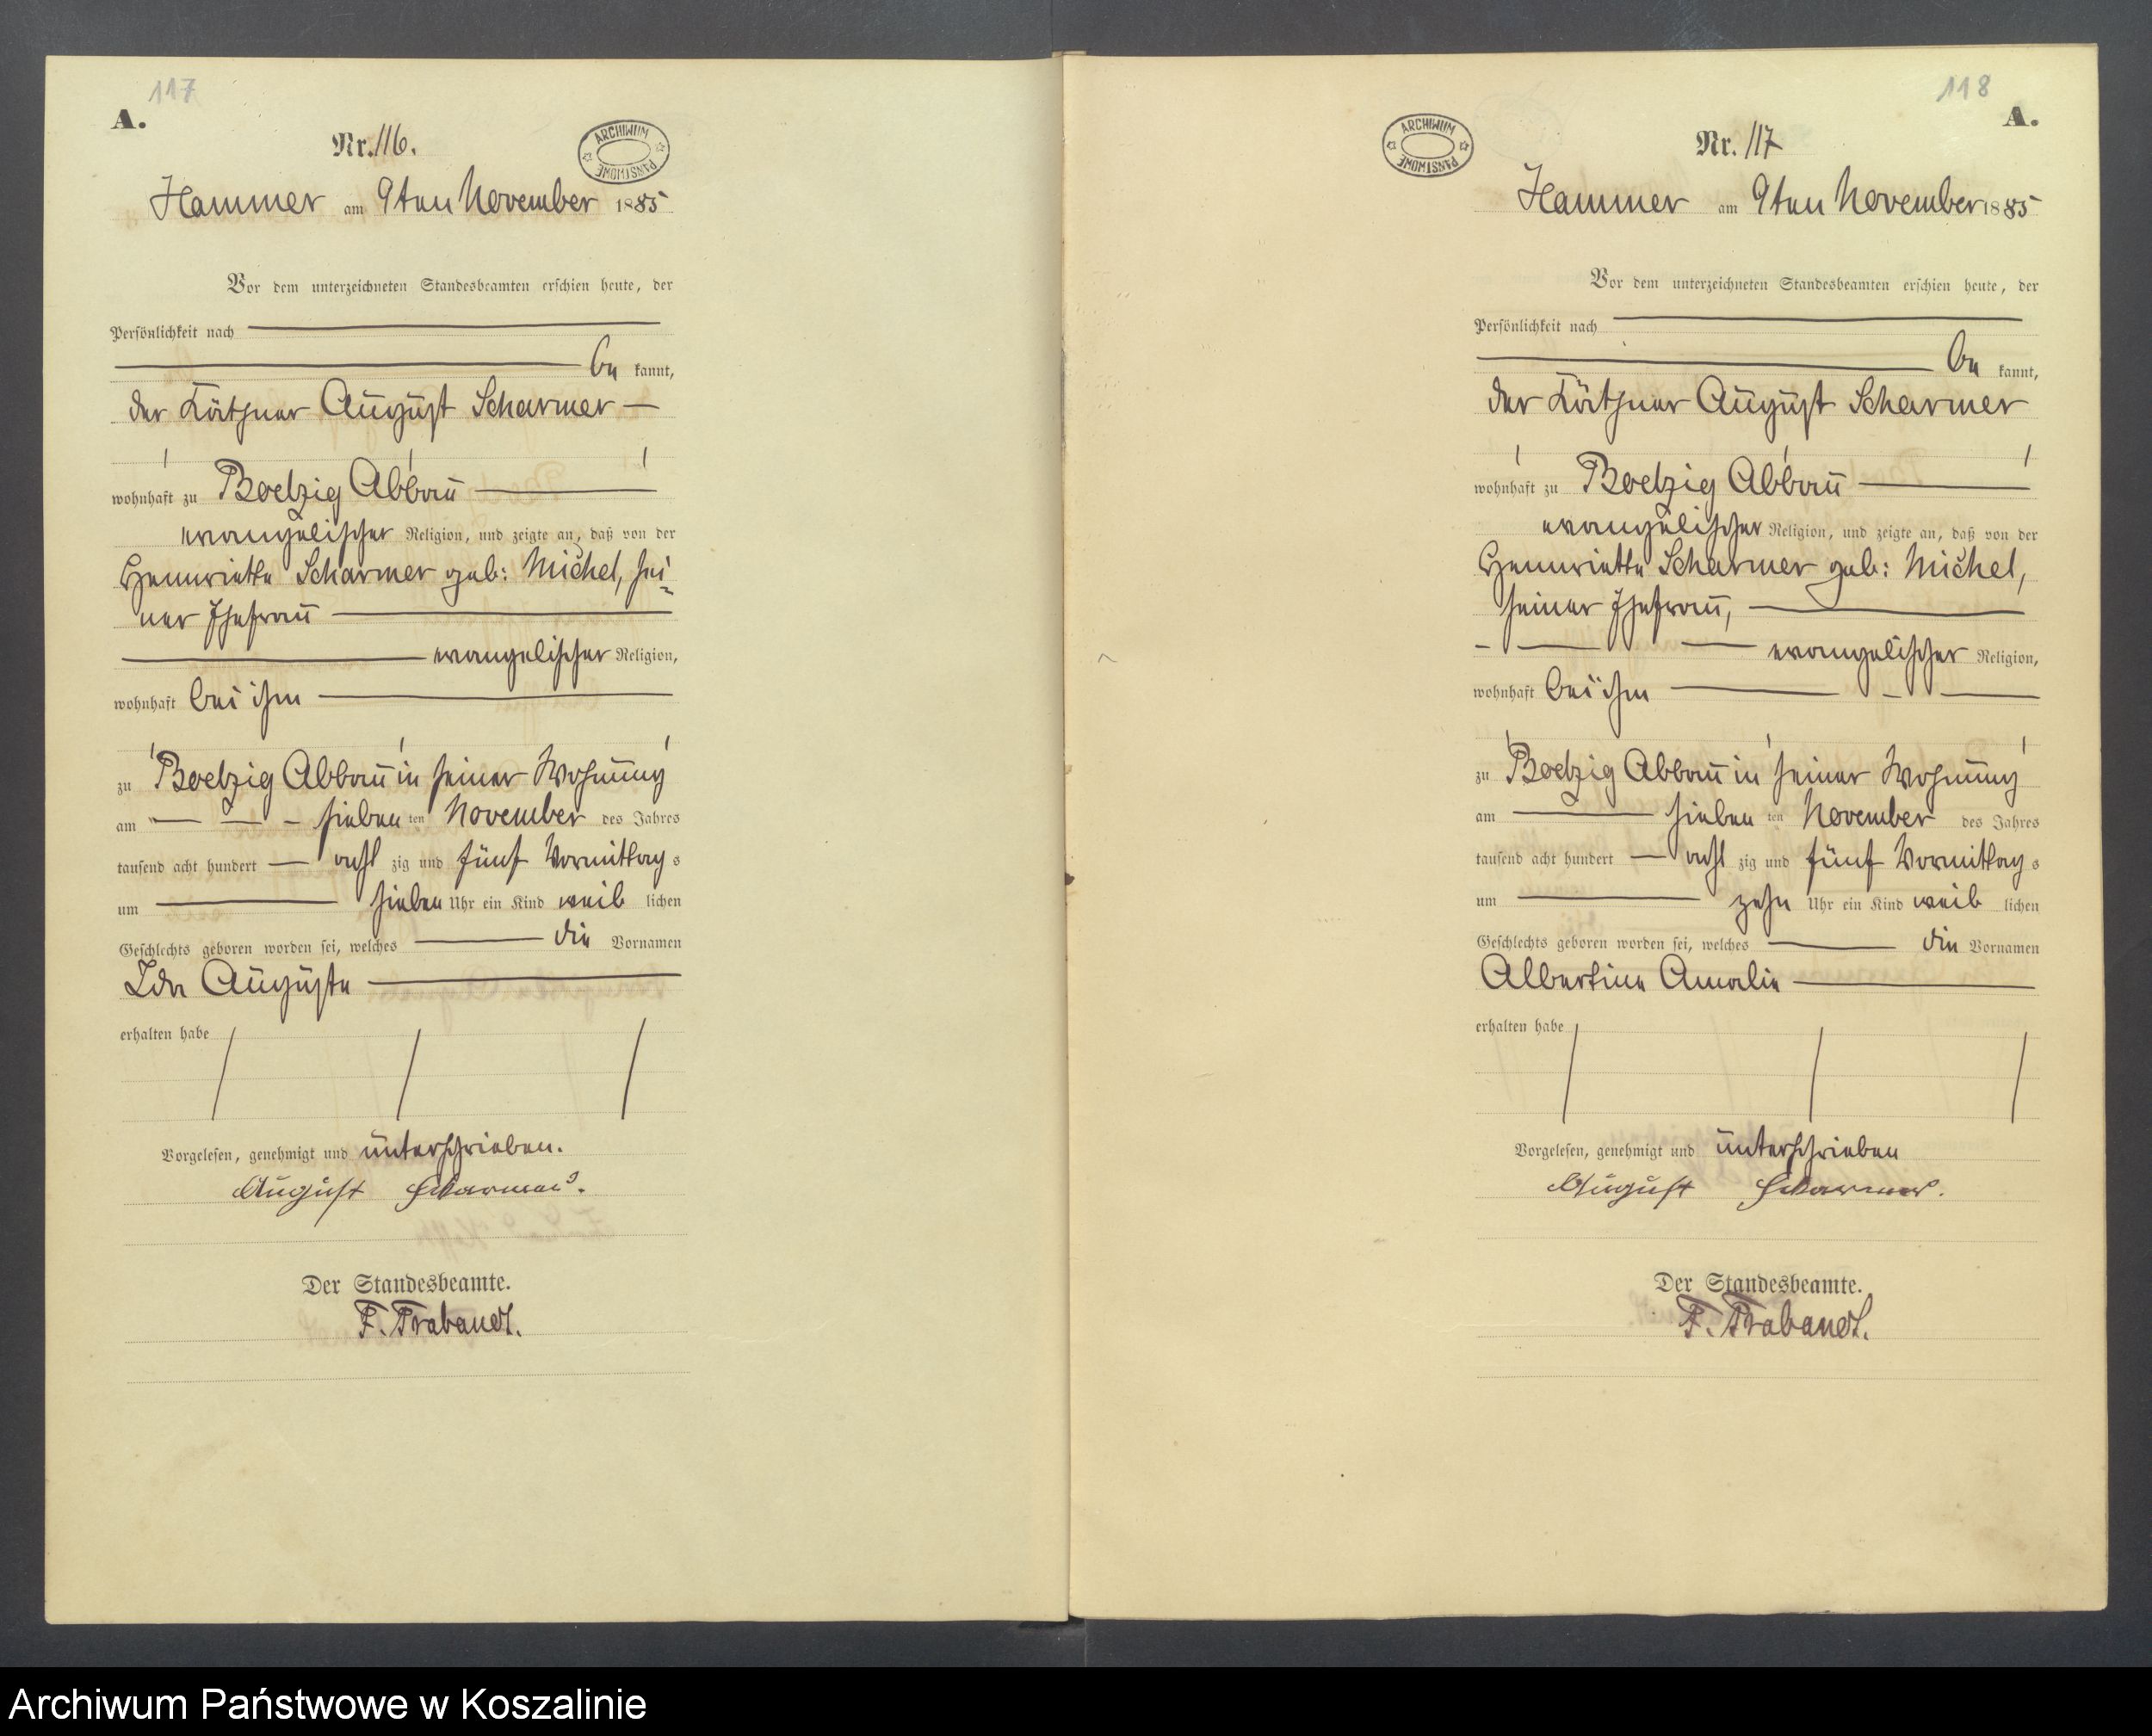 117
A.
Nr. 116.
ARCHIWUM PAŃSTWOWE
Hammer am 9ten November 1885
Vor dem unterzeichneten Standesbeamten erschien heute, der
Persönlichkeit nach
be kannt,
der Käthner August Scharmer
wohnhaft zu Boetzig Abbau
evangelischer Religion, und zeigte an, daß von der
Hennriette Scharmer geb: Michel, sei-
ner Ehefrau
evangelischer Religion,
wohnhaft bei ihm
zu Boetzig Abbau in seiner Wohnung
am sieben ten November des Jahres
tausend acht hundert acht zig und fünf Vormittag s
um sieben Uhr ein Kind weib lichen
Geschlechts geboren worden sei, welches die Vornamen
Ida Auguste
erhalten habe
Vorgelesen, genehmigt und unterschrieben.
August Scharmer.
Der Standesbeamte.
F. Trabandt.
118
A.
ARCHIWUM PAŃSTWOWE
Nr. 117
Hammer am 9ten November 1885
Vor dem unterzeichneten Standesbeamten erschien heute, der
Persönlichkeit nach
be kannt,
der Käthner August Scharmer
wohnhaft zu Boetzig Abbau
evangelischer Religion, und zeigte an, daß von der
Hennriette Scharmer geb: Michel,
seiner Ehefrau,
evangelischer Religion,
wohnhaft bei ihm
zu Boetzig Abbau in seiner Wohnung
am sieben ten November des Jahres
tausend acht hundert acht zig und fünf Vormittag s
um zehn Uhr ein Kind weib lichen
Geschlechts geboren worden sei, welches die Vornamen
Albertine Amalie
erhalten habe
Vorgelesen, genehmigt und unterschrieben
August Scharmer.
Der Standesbeamte.
F. Trabandt.
Archiwum Państwowe w Koszalinie